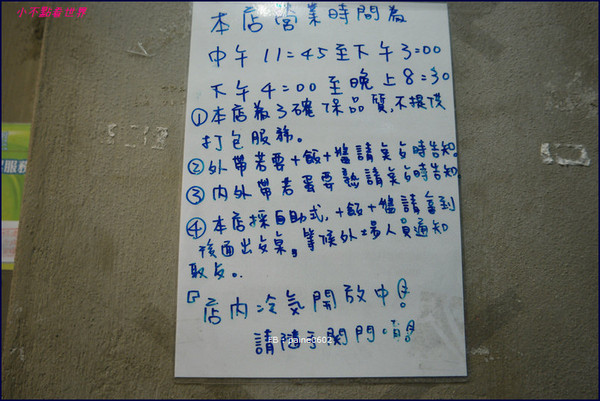 小不點看世界
本店營業時間為
中午 11:45 至下午 3:00
下午 4:00 至晚上 8:30
①本店為了確保品質,不提供
打包服務。
②外帶若要+飯+醬請點餐時告知。
③內外帶若蛋要熟請點餐時告知
④本店採自助式,+飯+醬請拿到
後面出餐桌,等候外場人員通知
取餐。
店內冷氣開放中!
請隨手關門
FB:naine0602